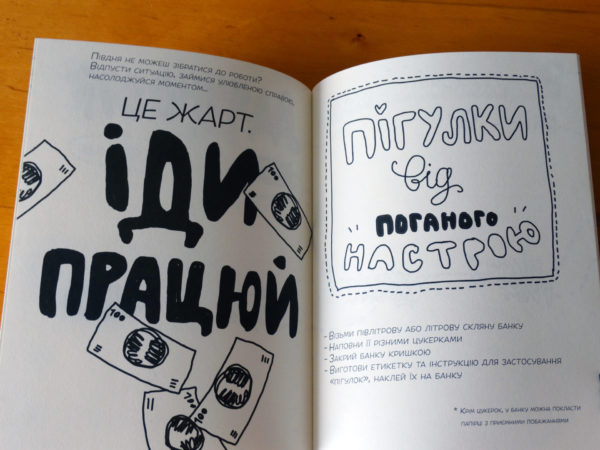 Півдня не можеш зібратися до роботи?
Відпусти ситуацію, займися улюбленою справою,
насолоджуйся моментом...
ЦЕ ЖАРТ.
ІДИ
ПРАЦЮЙ
100
100
100
ПІГУЛКИ
від
ПОГАНОГО
"НАСТРІЮ"
- Візьми півлітрову або літрову скляну банку
- Наповни її різними цукерками
- Закрий банку кришкою
- Виготови етикетку та інструкцію для застосування
«пігулок», наклей їх на банку
* Крім цукерок, у банку можна покласти
папірці з приємними побажаннями